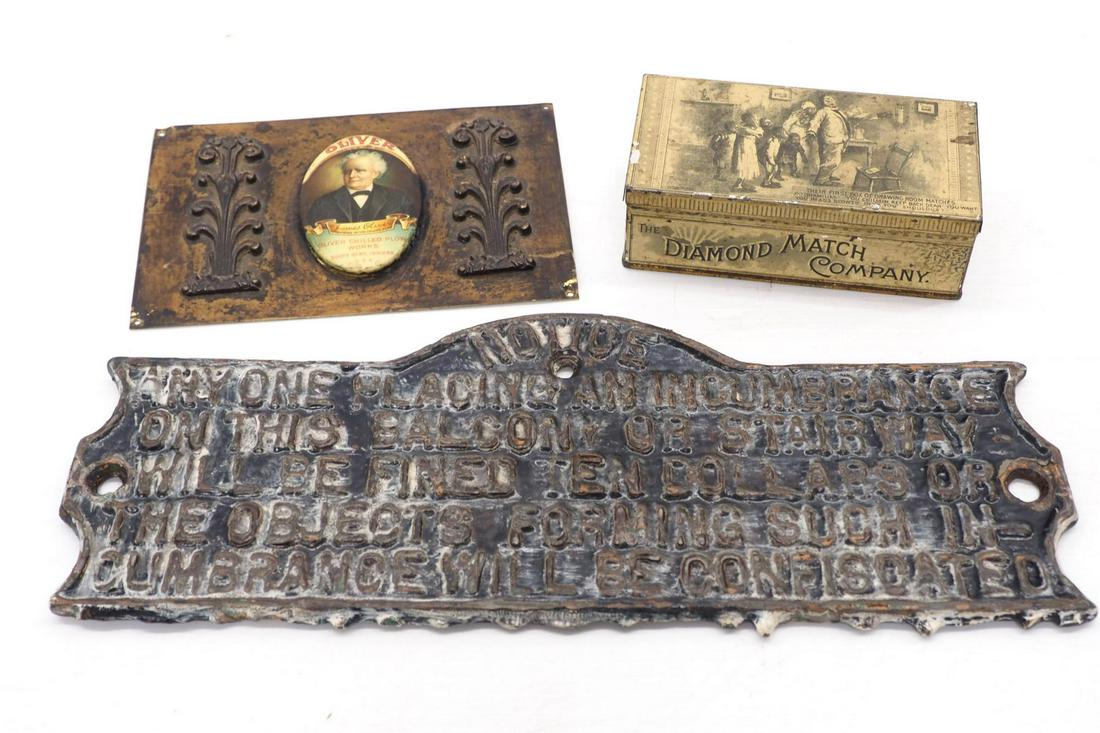 OLIVER
James Oliver
OLIVER CHILLED PLOW
WORKS
SOUTH BEND, INDIANA
U.S.A.
THEIR FIRST BOX OF DRAWING ROOM MATCHES
KEEP BACK DEAR, YOU WANT
THE
DIAMOND MATCH
COMPANY.
NOTICE
ANY ONE PLACING AN INCUMBRANCE
ON THIS BALCONY OR STAIRWAY
WILL BE FINED TEN DOLLARS OR
THE OBJECTS FORMING SUCH IN-
CUMBRANCE WILL BE CONFISCATED